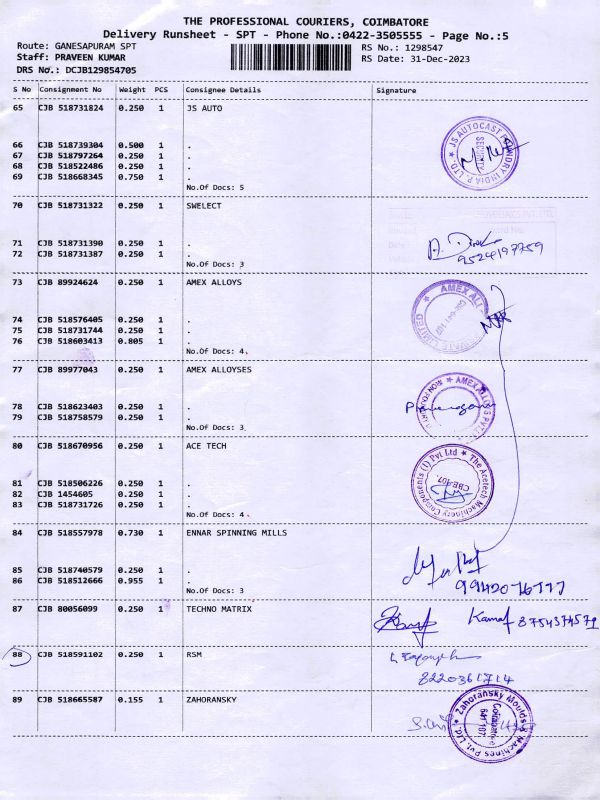 THE PROFESSIONAL COURIERS, COIMBATORE
Delivery Runsheet - SPT - Phone No.:0422-3505555 - Page No.:5
Route: GANESAPURAM SPT
Staff: PRAVEEN KUMAR
DRS No.: DCJB129854705
RS No.: 1298547
RS Date: 31-Dec-2023
S No Consignment No Weight PCS Consignee Details Signature
65 CJB 518731824 0.250 1 JS AUTO
66 CJB 518739304 0.500 1 .
67 CJB 518797264 0.250 1 .
68 CJB 518522486 0.250 1 .
69 CJB 518668345 0.750 1 .
No.Of Docs: 5
JS AUTOCAST FOUNDRY INDIA P LTD.
SECURITY
70 CJB 518731322 0.250 1 SWELECT
71 CJB 518731390 0.250 1 .
72 CJB 518731387 0.250 1 .
No.Of Docs: 3
9524197759
73 CJB 89924624 0.250 1 AMEX ALLOYS
74 CJB 518576405 0.250 1 .
75 CJB 518731744 0.250 1 .
76 CJB 518603413 0.805 1 .
No.Of Docs: 4
77 CJB 89977043 0.250 1 AMEX ALLOYSES
78 CJB 518623403 0.250 1 .
79 CJB 518758579 0.250 1 .
No.Of Docs: 3
80 CJB 518670956 0.250 1 ACE TECH
81 CJB 518506226 0.250 1 .
82 CJB 1454605 0.250 1 .
83 CJB 518731726 0.250 1 .
No.Of Docs: 4
The Acetech Machinery Components (I) Pvt Ltd
CBE-107.
84 CJB 518557978 0.730 1 ENNAR SPINNING MILLS
85 CJB 518740579 0.250 1 .
86 CJB 518512666 0.955 1 .
No.Of Docs: 3
87 CJB 80056099 0.250 1 TECHNO MATRIX
Kamal 8754374579
88 CJB 518591102 0.250 1 RSM
8220361714
89 CJB 518665587 0.155 1 ZAHORANSKY
Zahoransky Moulds & Machines Pvt Ltd.
Coimbatore
641 107